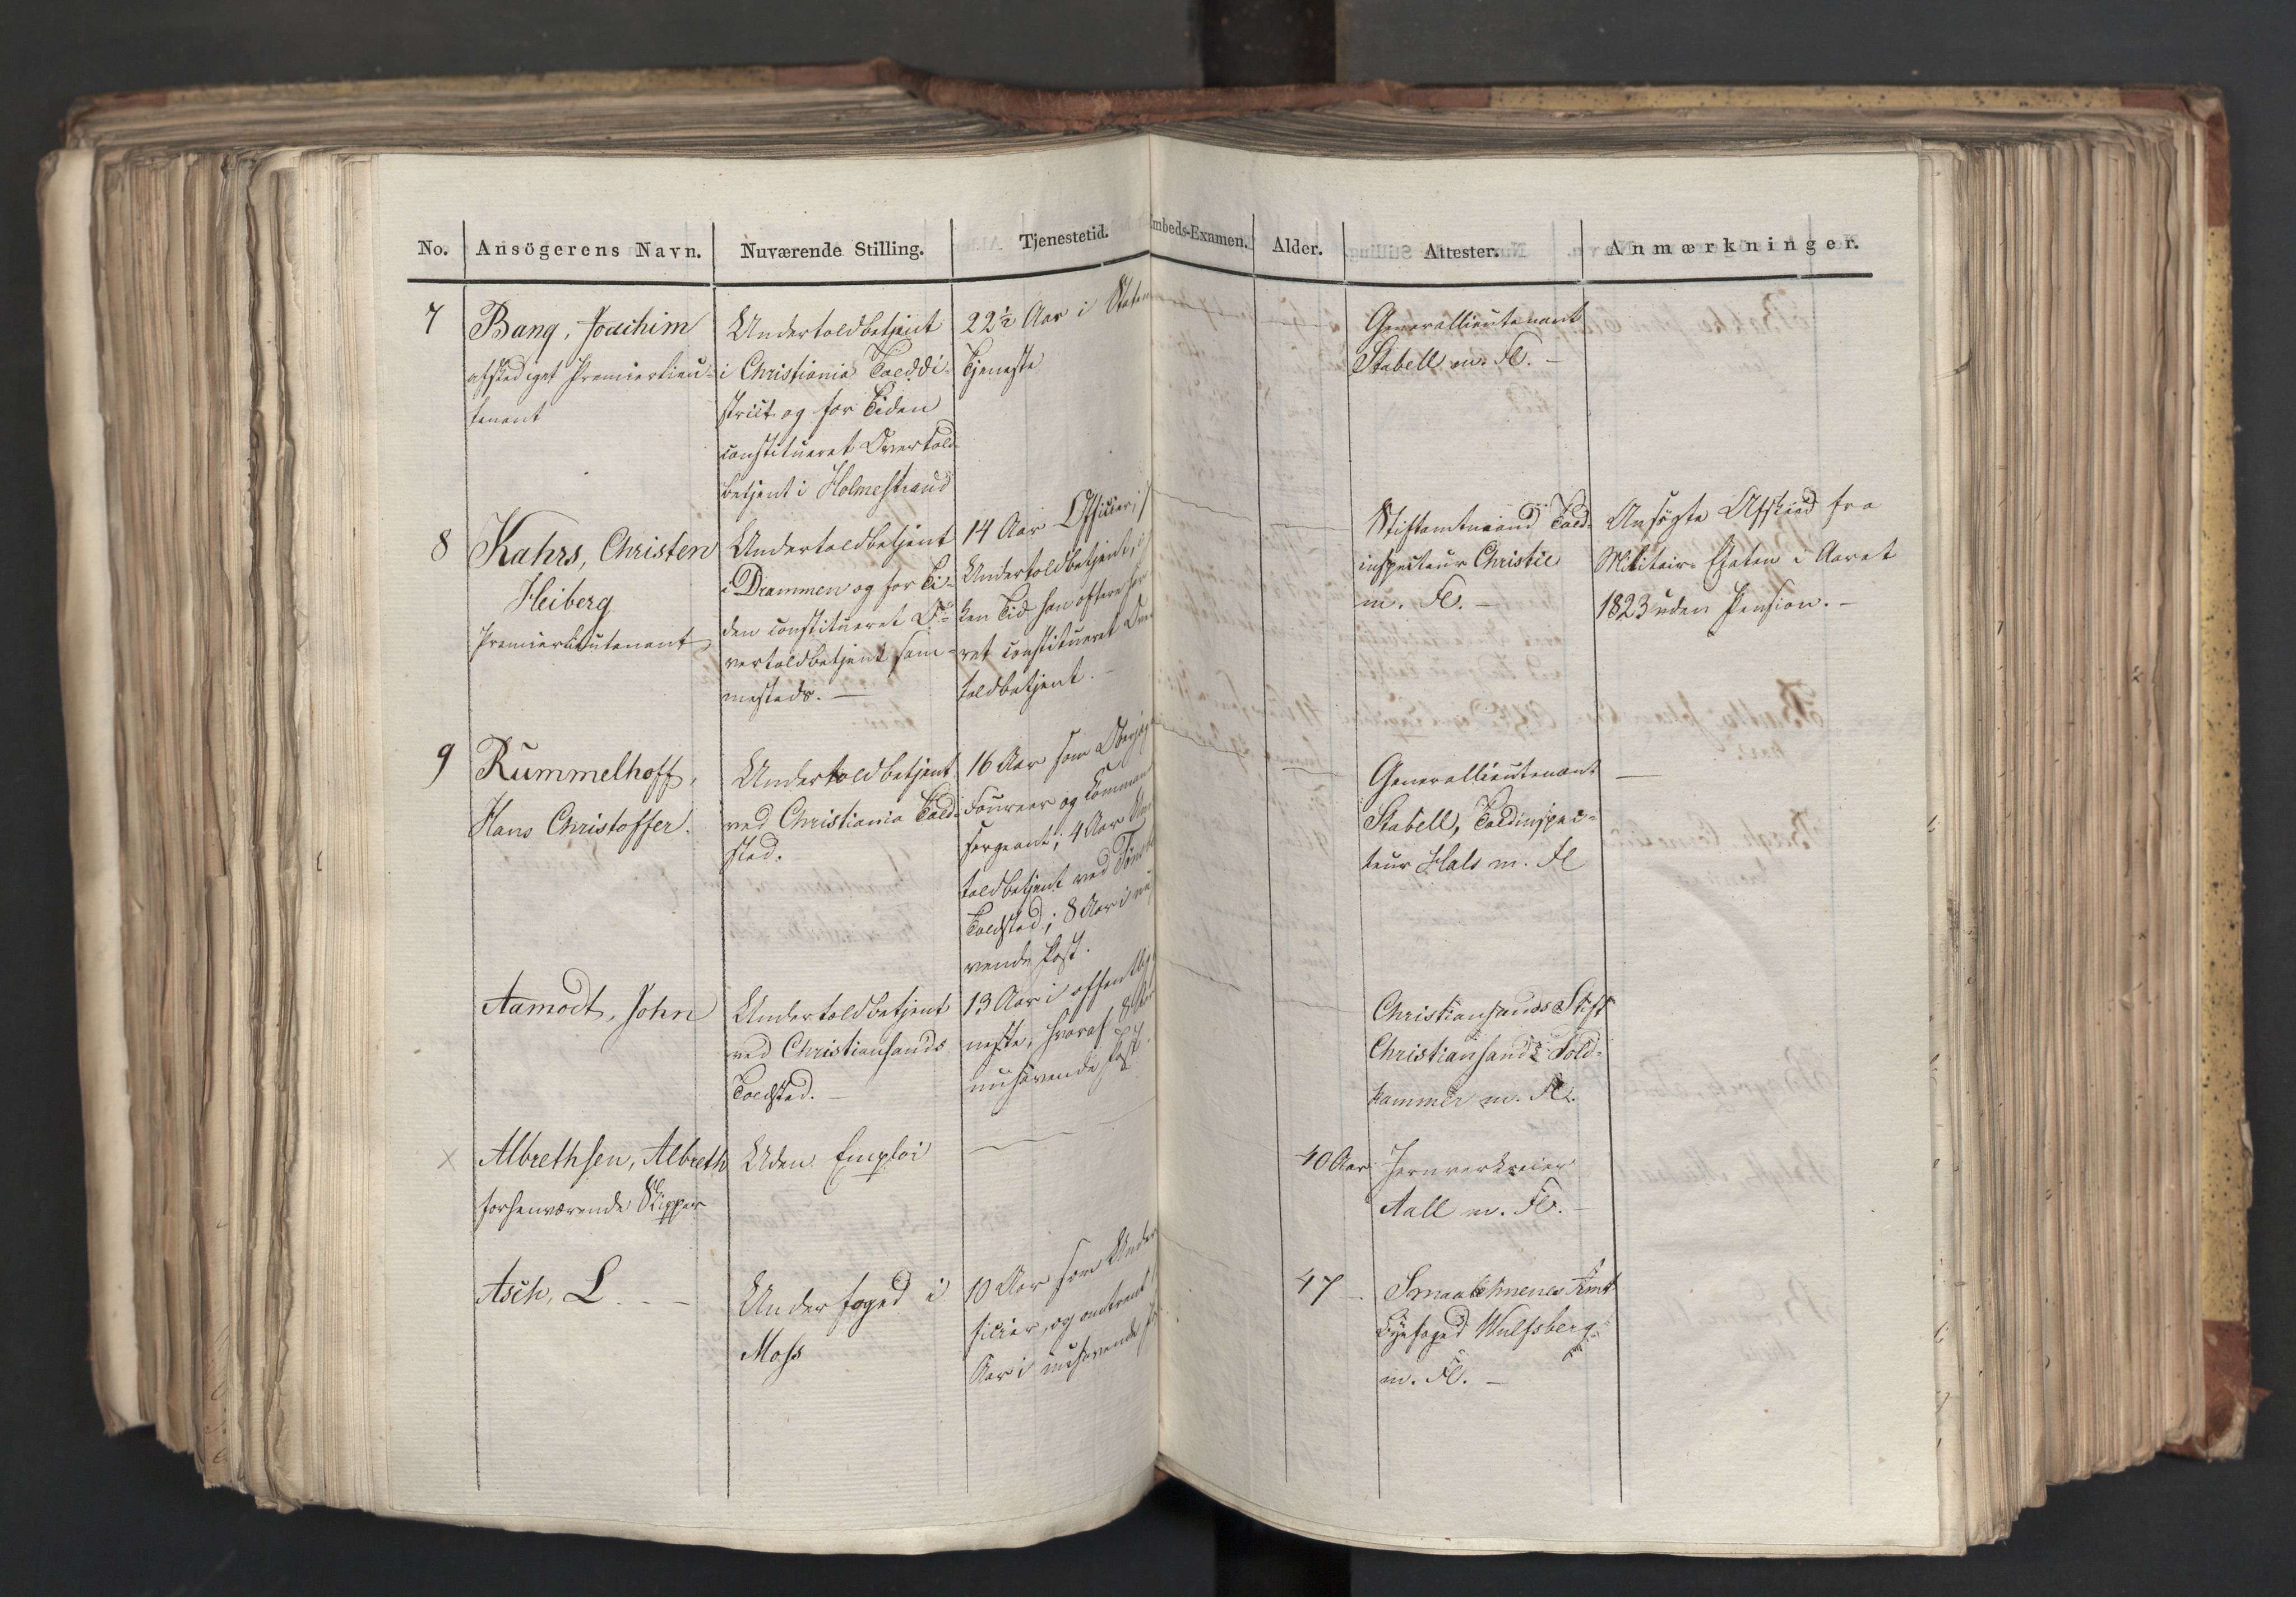 No. Ansögerens Navn. Nuværende Stilling. Tjenestetid. Embeds-Examen. Alder. Attester. Anmærkninger.
7
Bang, Joachim
afskediget Premierlieu-
tenant
Undertoldbetjent
i Christiania Tolddi-
strict og for Tiden
constitueret Overtold-
betjent i Holmestrand
22½ Aar i Statens
Tjeneste
Generallieutenant
Stabell m. Fl. –
8
Kahrs, Christen
Heiberg
Premierlieutenant
Undertoldbetjent
i Drammen og for Ti-
den constitueret O-
vertoldbetjent sam-
mesteds. –
14 Aar Officier, 7
Undertoldbetjent,
ken Tid han oftere har
ret constitueret Over
toldbetjent. –
Stiftamtmand Told-
inspecteur Christie
m. Fl. –
Ansøgte Afskeed fra
Militair-Etaten i Aaret
1823 uden Pension. –
9
Rummelhoff,
Hans Christoffer.
Undertoldbetjent
ved Christiania Told-
sted.
16 Aar som Oberjæger
Foureer og Comman
sergeant; 4 Aar Under
toldbetjent ved Tønsb
Toldsted; 8 Aar i nu
rende Post.
Generallieutenant
Stabell, Toldinspec-
teur Hals m. Fl
–
Aamodt, John
Undertoldbetjent
ved Christiansands
Toldsted. –
13 Aar i offentlig
neste, hvoraf 8 Aar
nuhavende Post.
Christiansands Stift
Christiansands Told-
kammer m. Fl.
x
Albrethsen, Albreth
forhenværende Skipper
Uden Emploi
–
40 Aar
Jernverkseier
Aall m. Fl. –
Asch, L. – –
Underfoged i
Moss
10 Aar som Under
ficier, og omtrent
Aar i nuhavende
47 –
Smaalehnenes Amt
Byefoged Wulfsberg
m. Fl. –